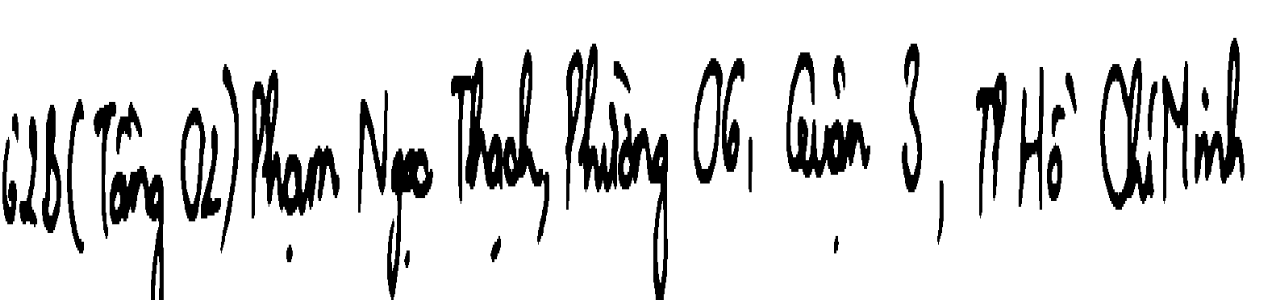 62B (Tầng 02) Phạm Ngọc Thạch, Phường 06, Quận 3, TP Hồ Chí Minh